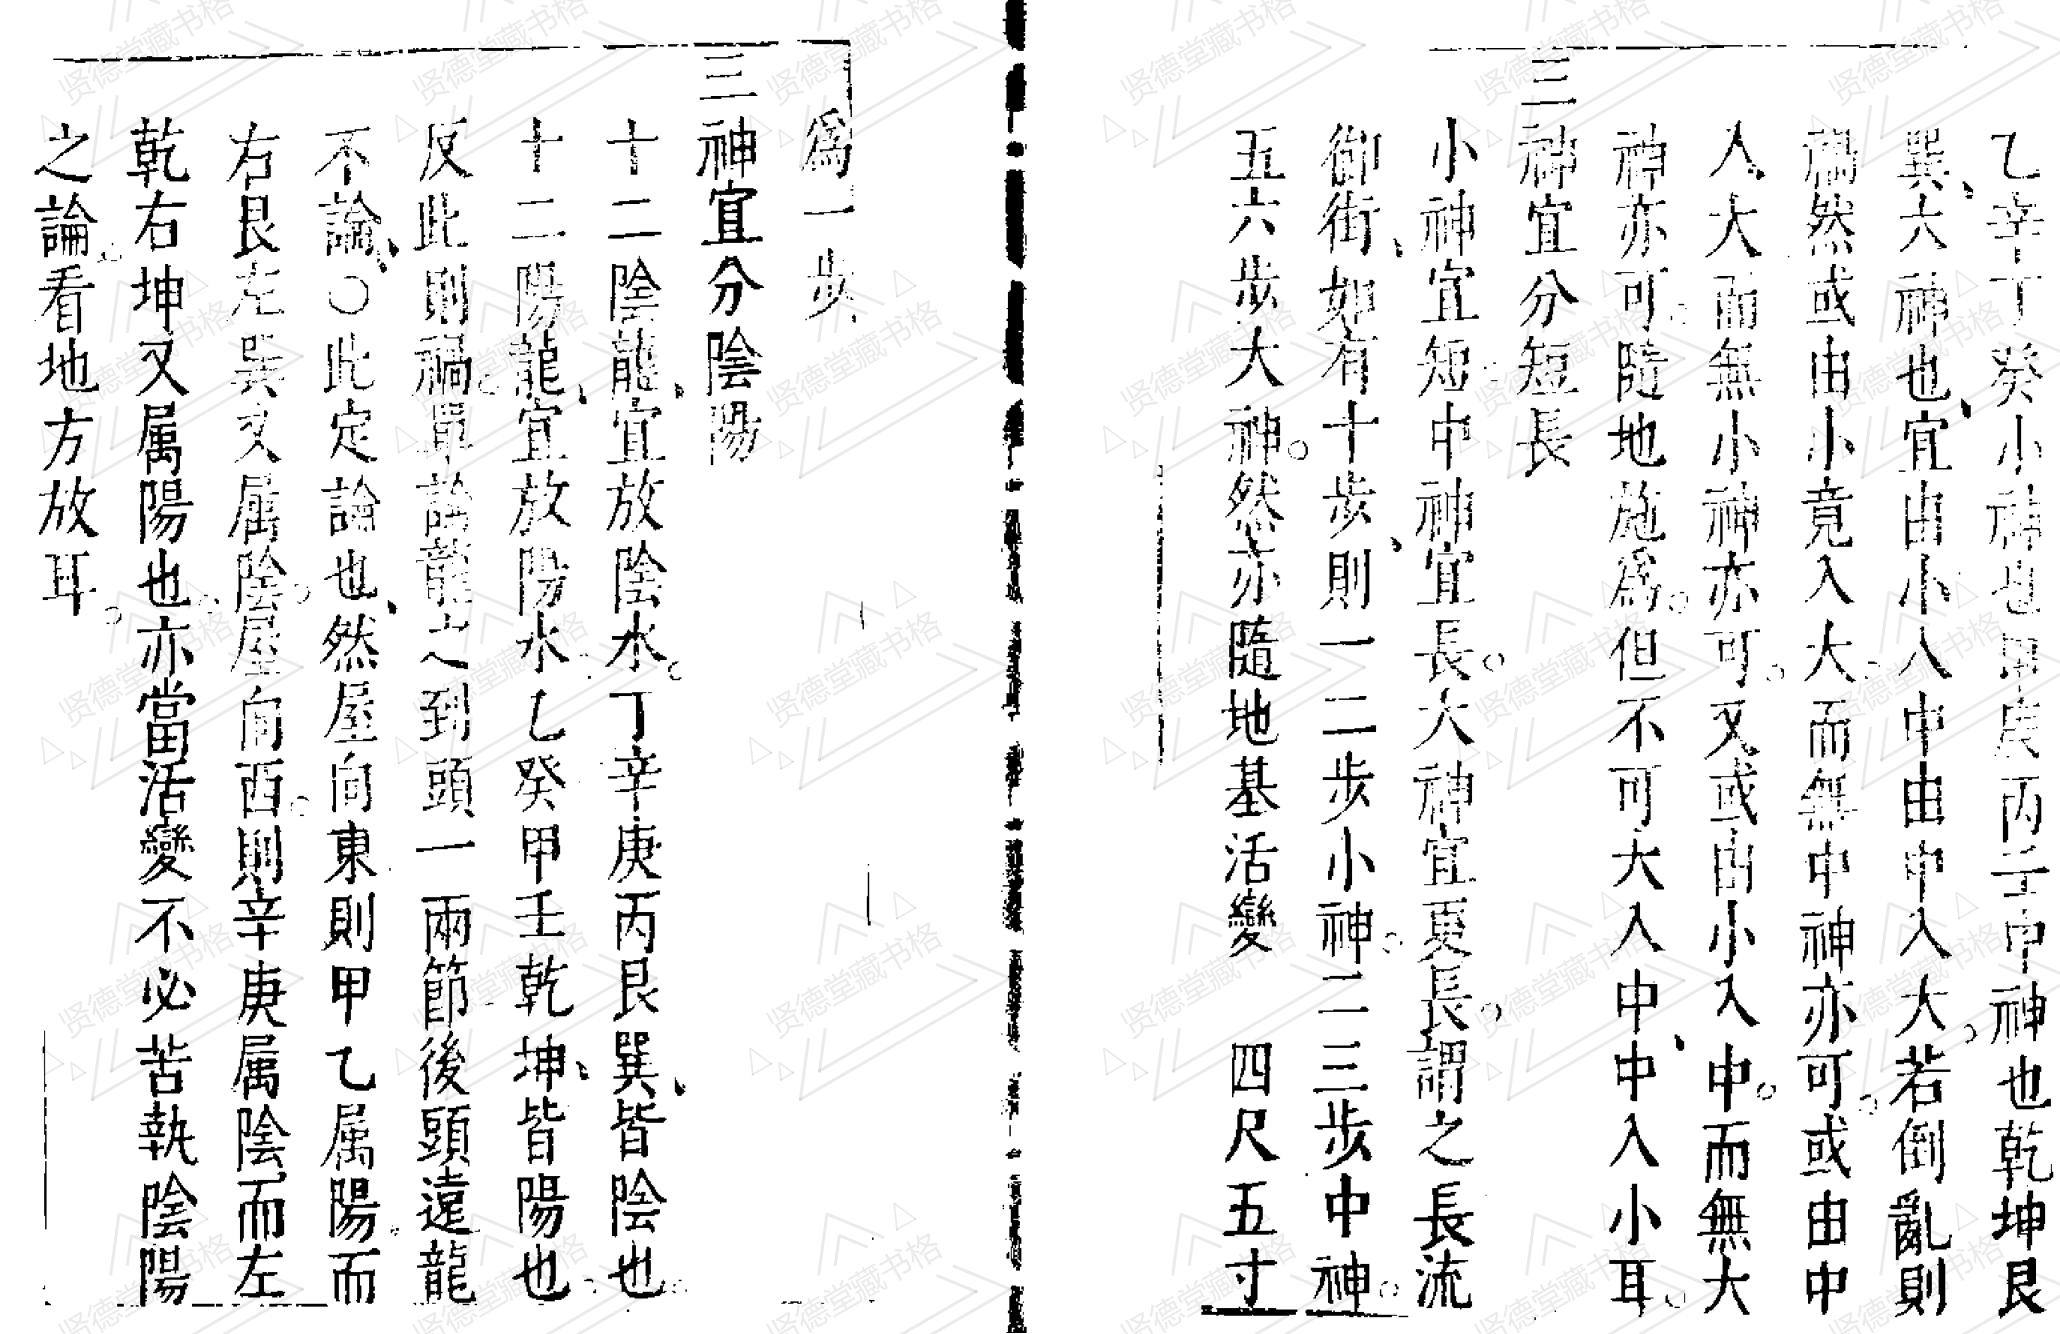 乙辛丁癸小神也甲庚丙壬中神也乾坤艮
巽六神也宜由小入中由中入大若倒亂則
禍然或由小竟入大而無中神亦可或由中
入大而無小神亦可又或由小入中而無大
神亦可隨地施爲但不可大入中中入小耳
三神宜分短長
小神宜短中神宜長大神宜更長謂之長流
御街如有十步則一二步小神二三步中神
五六步大神然亦隨地基活變　四尺五寸
爲一步
三神宜分陰陽
十二陰龍宜放陰水丁辛庚丙艮巽皆陰也
十二陽龍宜放陽水乙癸甲壬乾坤皆陽也
反此則禍單論龍之到頭一兩節後頭遠龍
不論○此定論也然屋向東則甲乙属陽而
右艮左巽又属陰屋向西則辛庚属陰而左
乾右坤又属陽也亦當活變不必苦執陰陽
之論看地方放耳